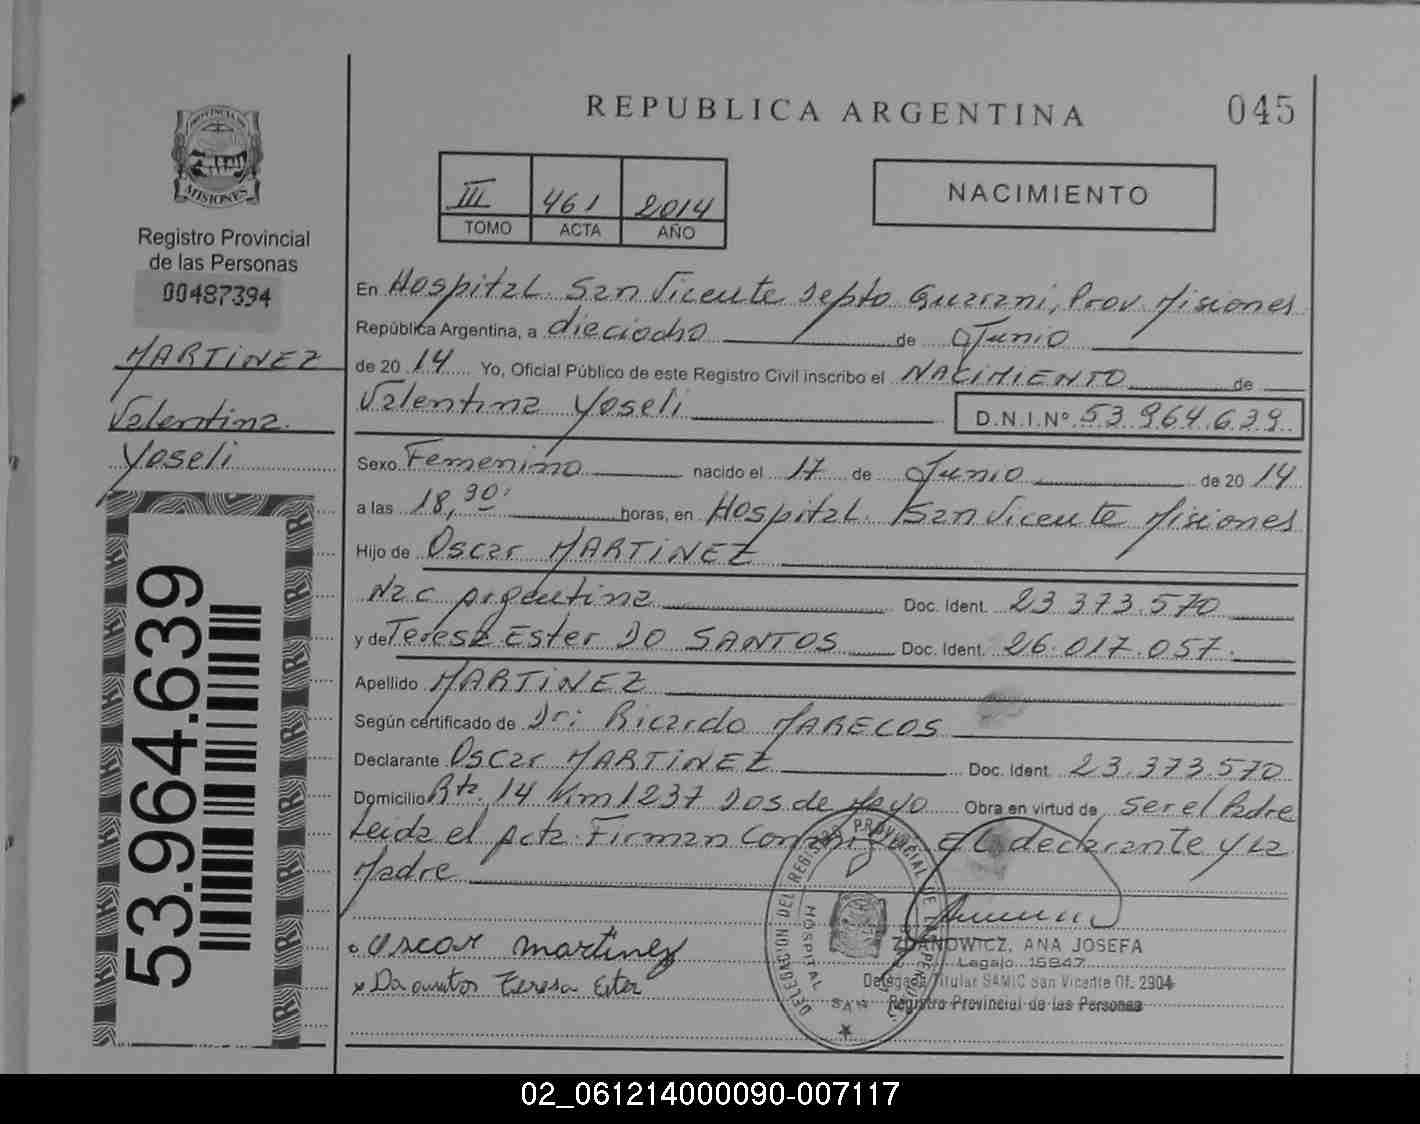 REPUBLICA ARGENTINA
045
PROVINCIA DE
MISIONES
Registro Provincial
de las Personas
00487394
MARTINEZ
Valentina
Yoseli
53.964.639
III 461 2014
TOMO ACTA AÑO
NACIMIENTO
En Hospital San Vicente Depto Guarani, Prov. Misiones
República Argentina, a dieciocho de Junio
de 20 14 Yo, Oficial Público de este Registro Civil inscribo el NACIMIENTO de
Valentina Yoseli D.N.I.Nº 53.964.639
Sexo Femenino nacido el 17 de Junio de 20 14
a las 18,30' horas, en Hospital San Vicente Misiones
Hijo de Oscar MARTINEZ
Nac Argentina Doc. Ident. 23.373.570
y de Teresa Ester DO SANTOS Doc. Ident. 26.017.057.
Apellido MARTINEZ
Según certificado de Dr: Ricardo MARECOS
Declarante Oscar MARTINEZ Doc. Ident. 23.373.570
Domicilio Rta. 14 Km 1237 Dos de Mayo Obra en virtud de Ser el Padre
Leida el Acta Firman el declarante y La
Madre
Oscar martinez
Teresa Ester
DELEGACION DEL REGISTRO PROVINCIAL DE LAS PERSONAS
HOSPITAL SAN
ZDANOWICZ, ANA JOSEFA
Legajo 15847
Delegada Titular SAMIC San Vicente Of. 2904
Registro Provincial de las Personas
02_061214000090-007117